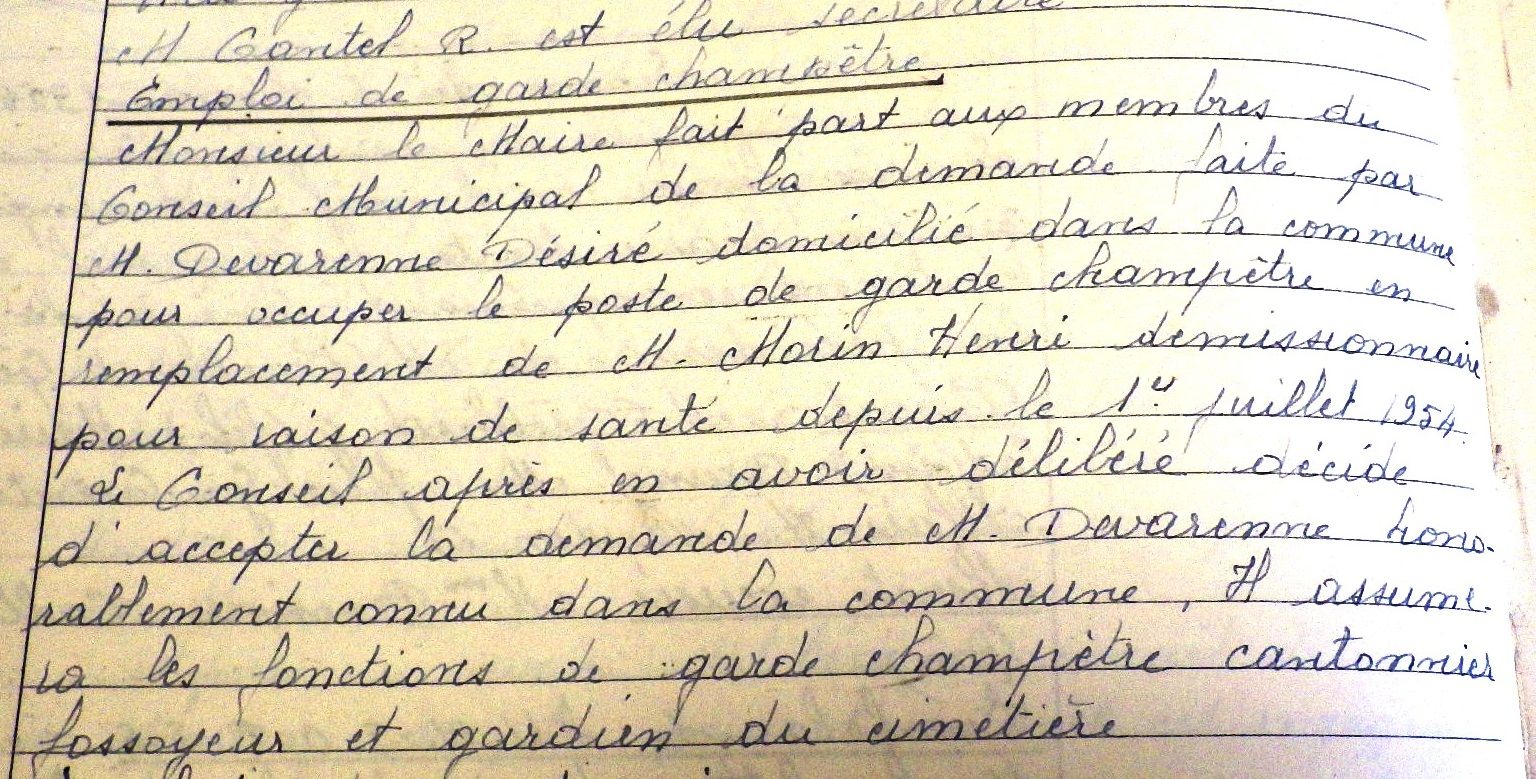 M Cantel R. est élu secrétaire
Emploi de garde champêtre
Monsieur le Maire fait part aux membres du
Conseil Municipal de la demande faite par
M. Devarenne Désiré domicilié dans la commune
pour occuper le poste de garde champêtre en
remplacement de M. Morin Henri demissionnaire
pour raison de santé depuis le 1er juillet 1954.
Le Conseil après en avoir délibéré décide
d'accepter la demande de M. Devarenne hono-
rablement connu dans la commune, Il assume-
ra les fonctions de garde champêtre cantonnier
fossoyeur et gardien du cimetière